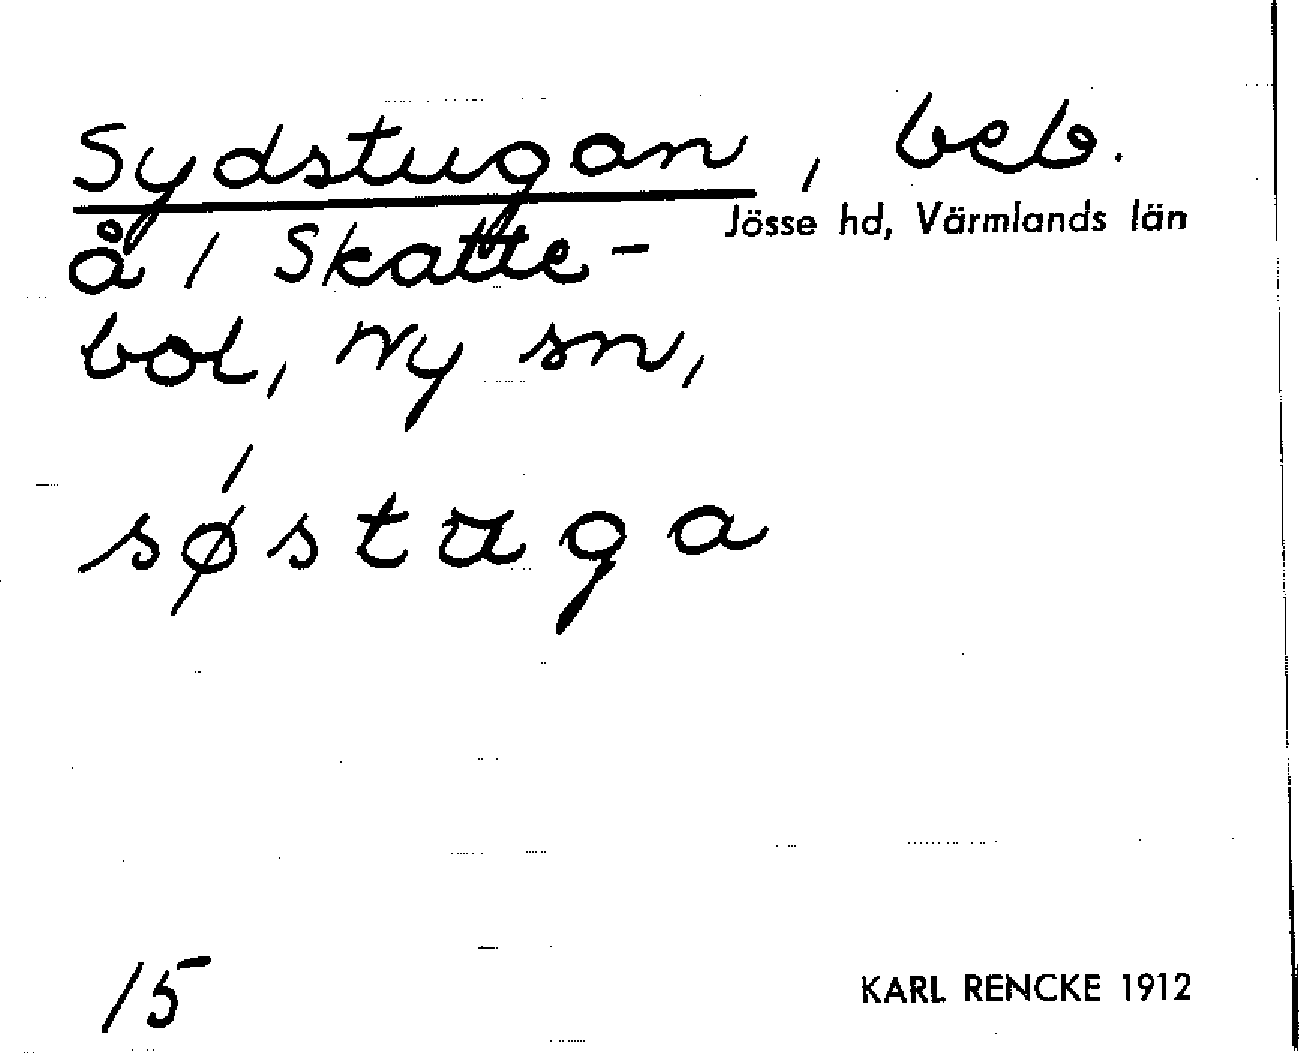 Sydstugan, beb.
Jösse hd, Värmlands län
å / Skatte-
bol, Ny sn,
sǿstuga
15
KARL RENCKE 1912